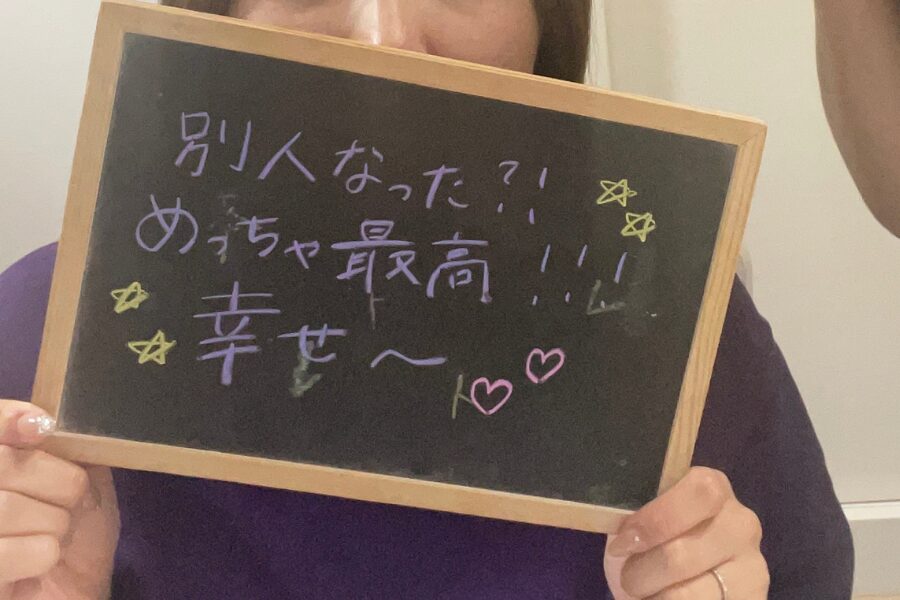 別人なった?!
めっちゃ最高!!!
幸せ～♡♡